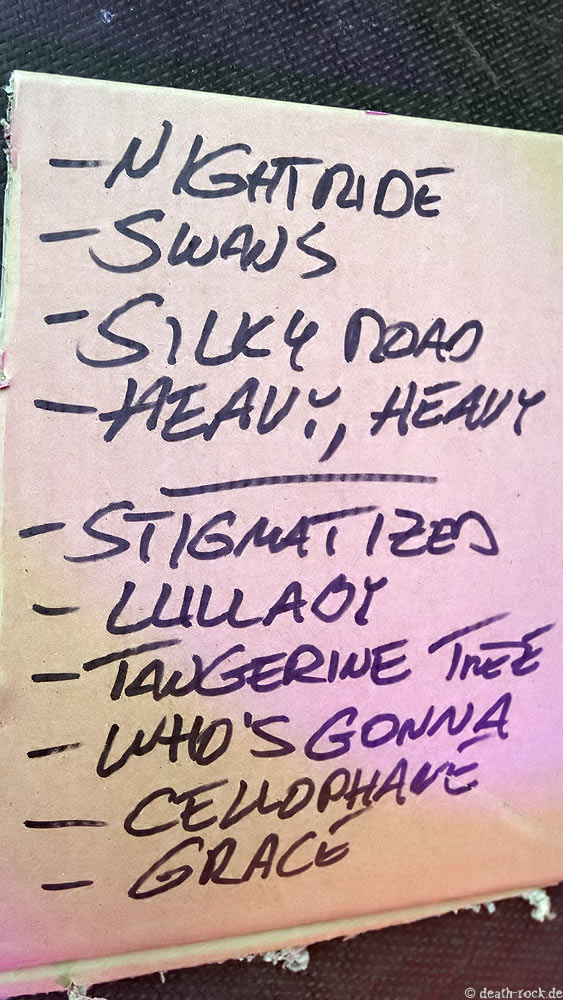 - NIGHTRIDE
- SWANS
- SILKY ROAD
- HEAVY, HEAVY
- STIGMATIZED
- LULLABY
- TANGERINE TREE
- WHO'S GONNA
- CELLOPHANE
- GRACE
© death-rock.de